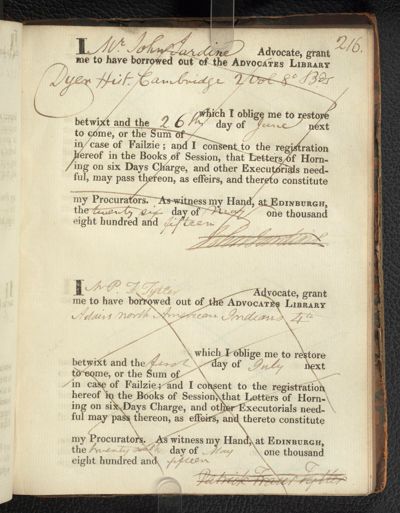 216.
I Mr. John Jardine Advocate, grant
me to have borrowed out of the ADVOCATES LIBRARY
Dyer Hist. Cambridge 2 vol 8º Bds
which I oblige me to restore
betwixt and the 26th day of June next
to come, or the Sum of
in case of Failzie; and I consent to the registration
hereof in the Books of Session, that Letters of Horn-
ing on six Days Charge, and other Executorials need-
ful, may pass thereon, as effeirs, and thereto constitute
my Procurators. As witness my Hand, at EDINBURGH,
the twenty six day of May one thousand
eight hundred and fifteen
John Jardine
I Mr P. F. Tytler Advocate, grant
me to have borrowed out of the ADVOCATES LIBRARY
Adairs north American Indians 4to
which I oblige me to restore
betwixt and the first day of July next
to come, or the Sum of
in case of Failzie; and I consent to the registration
hereof in the Books of Session, that Letters of Horn-
ing on six Days Charge, and other Executorials need-
ful may pass thereon, as effeirs, and thereto constitute
my Procurators. As witness my Hand, at EDINBURGH,
the twenty sixth day of May one thousand
eight hundred and fifteen
Patrick Fraser Tytler